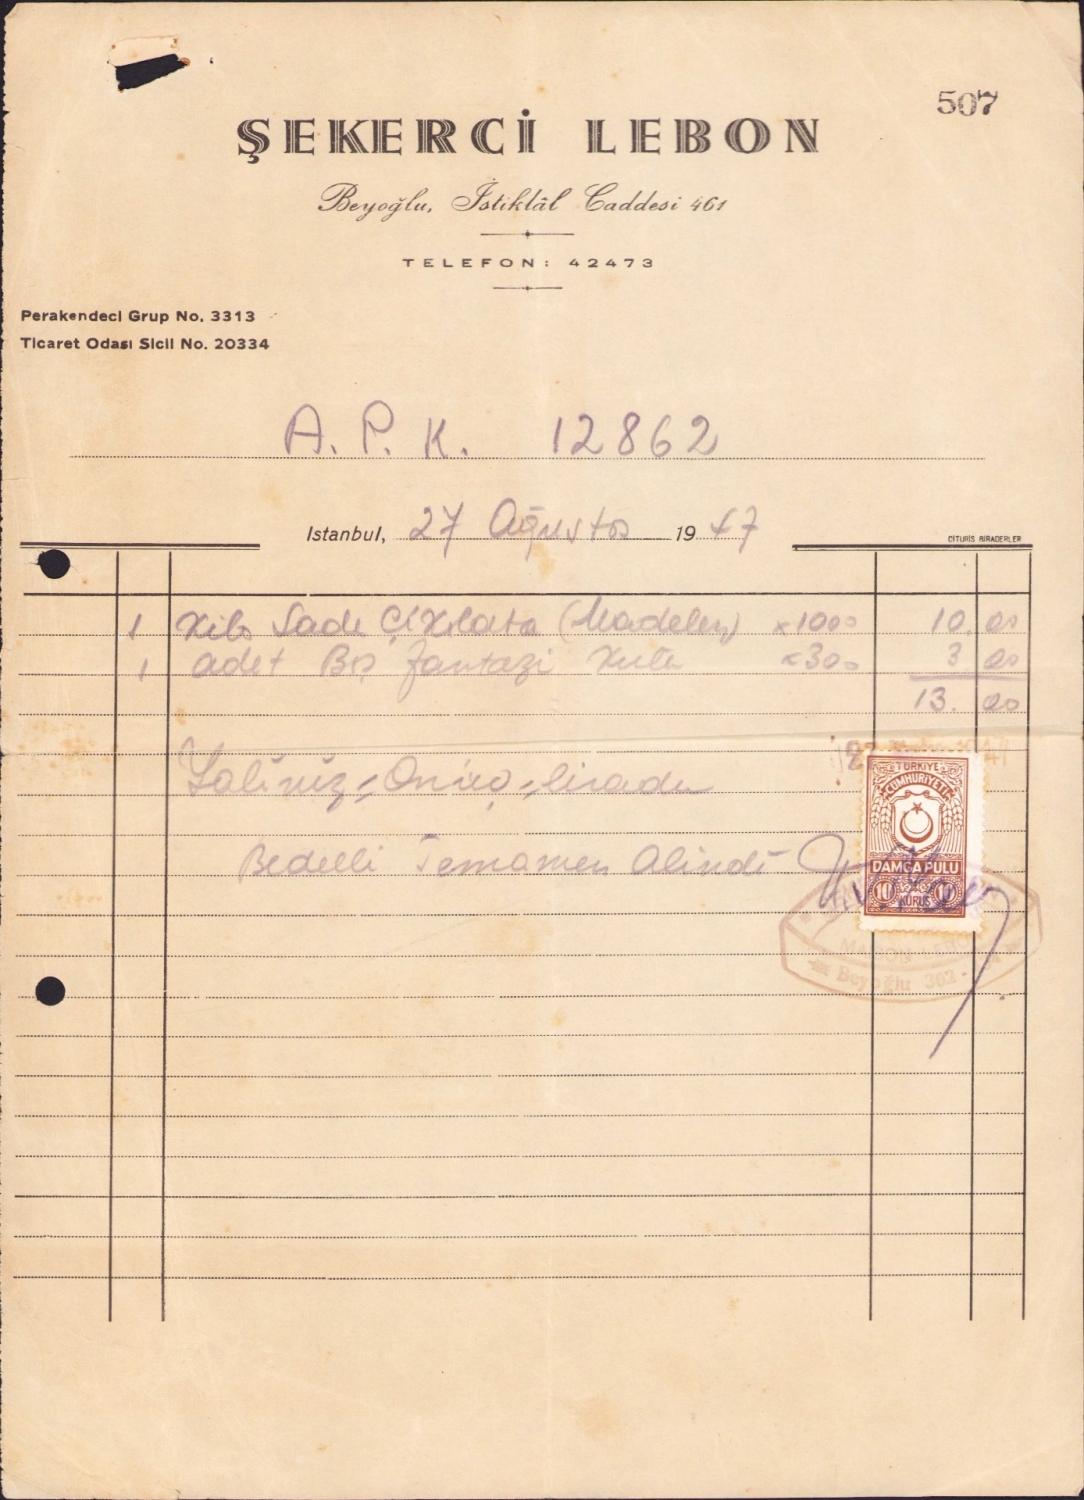 507
ŞEKERCİ LEBON
Beyoğlu, İstiklâl Caddesi 461
TELEFON: 42473
Perakendeci Grup No. 3313
Ticaret Odası Sicil No. 20334
A. P. K. 12862
Istanbul, 27 Ağustos 1947
CİTURİS BİRADERLER
1 Kilo Sade Çikolata (Madelen) x1000 10.00
1 adet Boş fantazi Kutu x300 3 00
13. 00
Yalınız = Onüç = liradır
TÜRKİYE
CUMHURİYETİ
Bedelli Temamen Alındı
DAMGA PULU
10 KURUŞ 10
MAISON LEBON
Beyoğlu 362